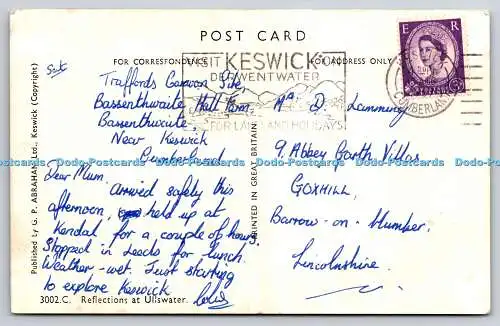 POST CARD
FOR CORRESPONDENCE
FOR ADDRESS ONLY
VISIT KESWICK ON
DERWENTWATER
FOR LAKELAND HOLIDAYS
E R
CUMBERLAND
Sat
Traffords Caravan Site,
Bassenthwaite Hall Farm
Bassenthwaite,
Near Keswick
Cumberland
Dear Mum,
Arrived safely this
afternoon, held up at
Kendal for a couple of hours.
Stopped in Leeds for lunch.
Weather - wet. Just starting
to explore Keswick
D. Lamming
9 Abbey Garth Villas
GOXHILL,
Barrow-on-Humber,
Lincolnshire.
Published by G. P. ABRAHAM Ltd., Keswick (Copyright)
PRINTED IN GREAT BRITAIN
3002.C. Reflections at Ullswater.
Dodo-Postcards